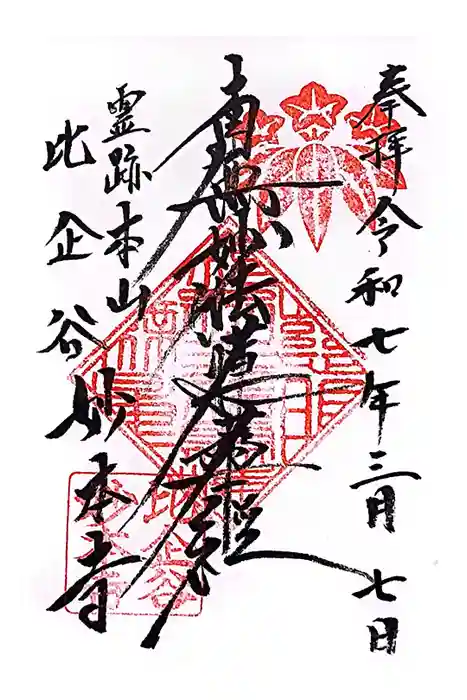 奉拝 令和七年三月七日
南無妙法蓮華経
霊跡本山
比企谷 妙本寺